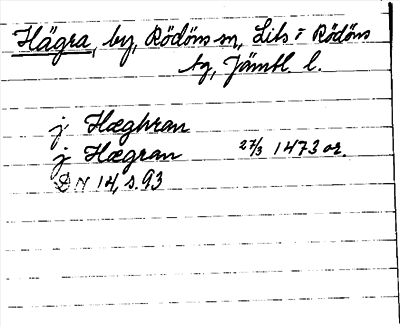 Hägra, by, Rödöns sn, Lits o Rödöns
tg, Jämtl l.
j Hæghran
j Hægran 27/3 1473 or.
DN 14, s. 93